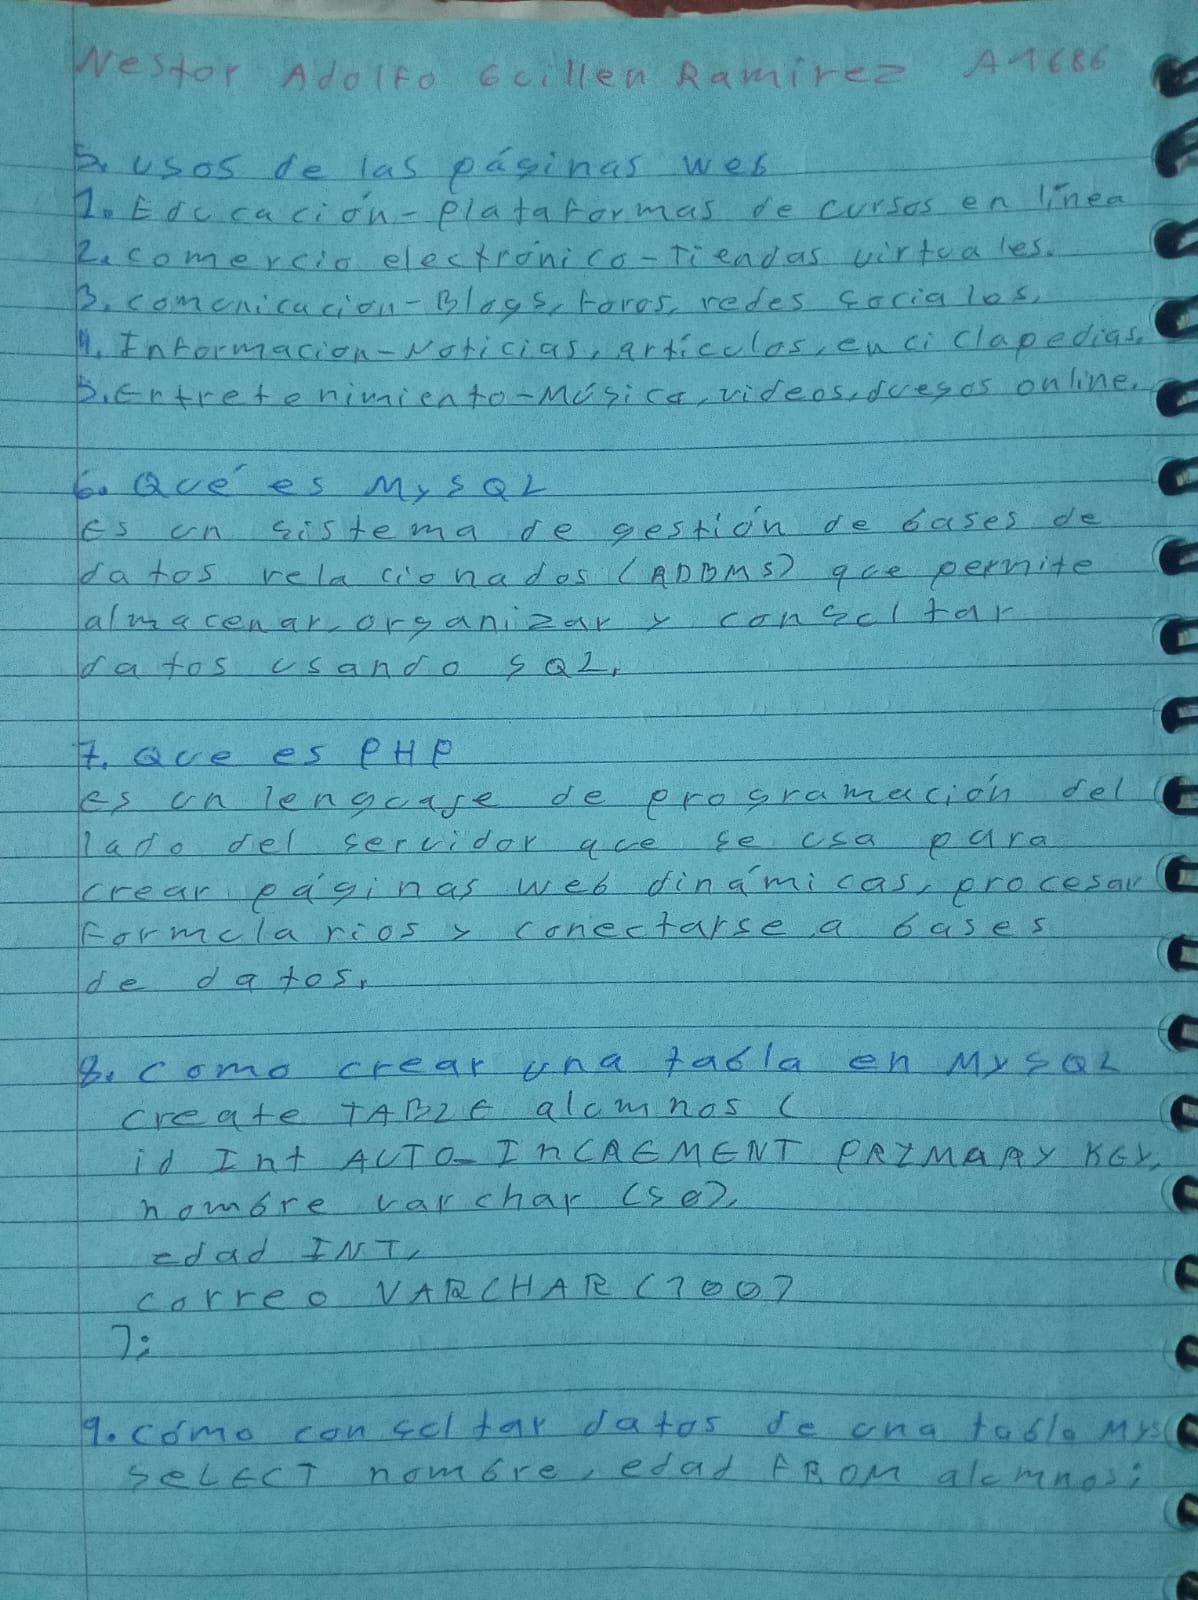 Nestor Adolfo Guillen Ramirez A1686
5. usos de las páginas web
1. Educación - Plataformas de cursos en línea
2. comercio electrónico - Tiendas virtuales.
3. comunicacion - Blogs, foros, redes sociales.
4. Informacion - Noticias, artículos, enciclapedias.
5. Entretenimiento - Música, videos, juegos online.
6. Qué es MySQL
es un sistema de gestión de bases de
datos relacionados (RDBMS) que permite
almacenar, organizar y consultar
datos usando SQL.
7. Que es PHP
es un lenguaje de programación del
lado del servidor que se usa para
crear páginas web dinámicas, procesar
formularios y conectarse a bases
de datos.
8. como crear una tabla en MySQL
create TABLE alumnos (
id Int AUTO_INCREMENT PRIMARY KEY,
nombre varchar (50),
edad INT,
correo VARCHAR (100)
);
9. cómo consultar datos de una tabla Mys
SELECT nombre, edad FROM alumnos;